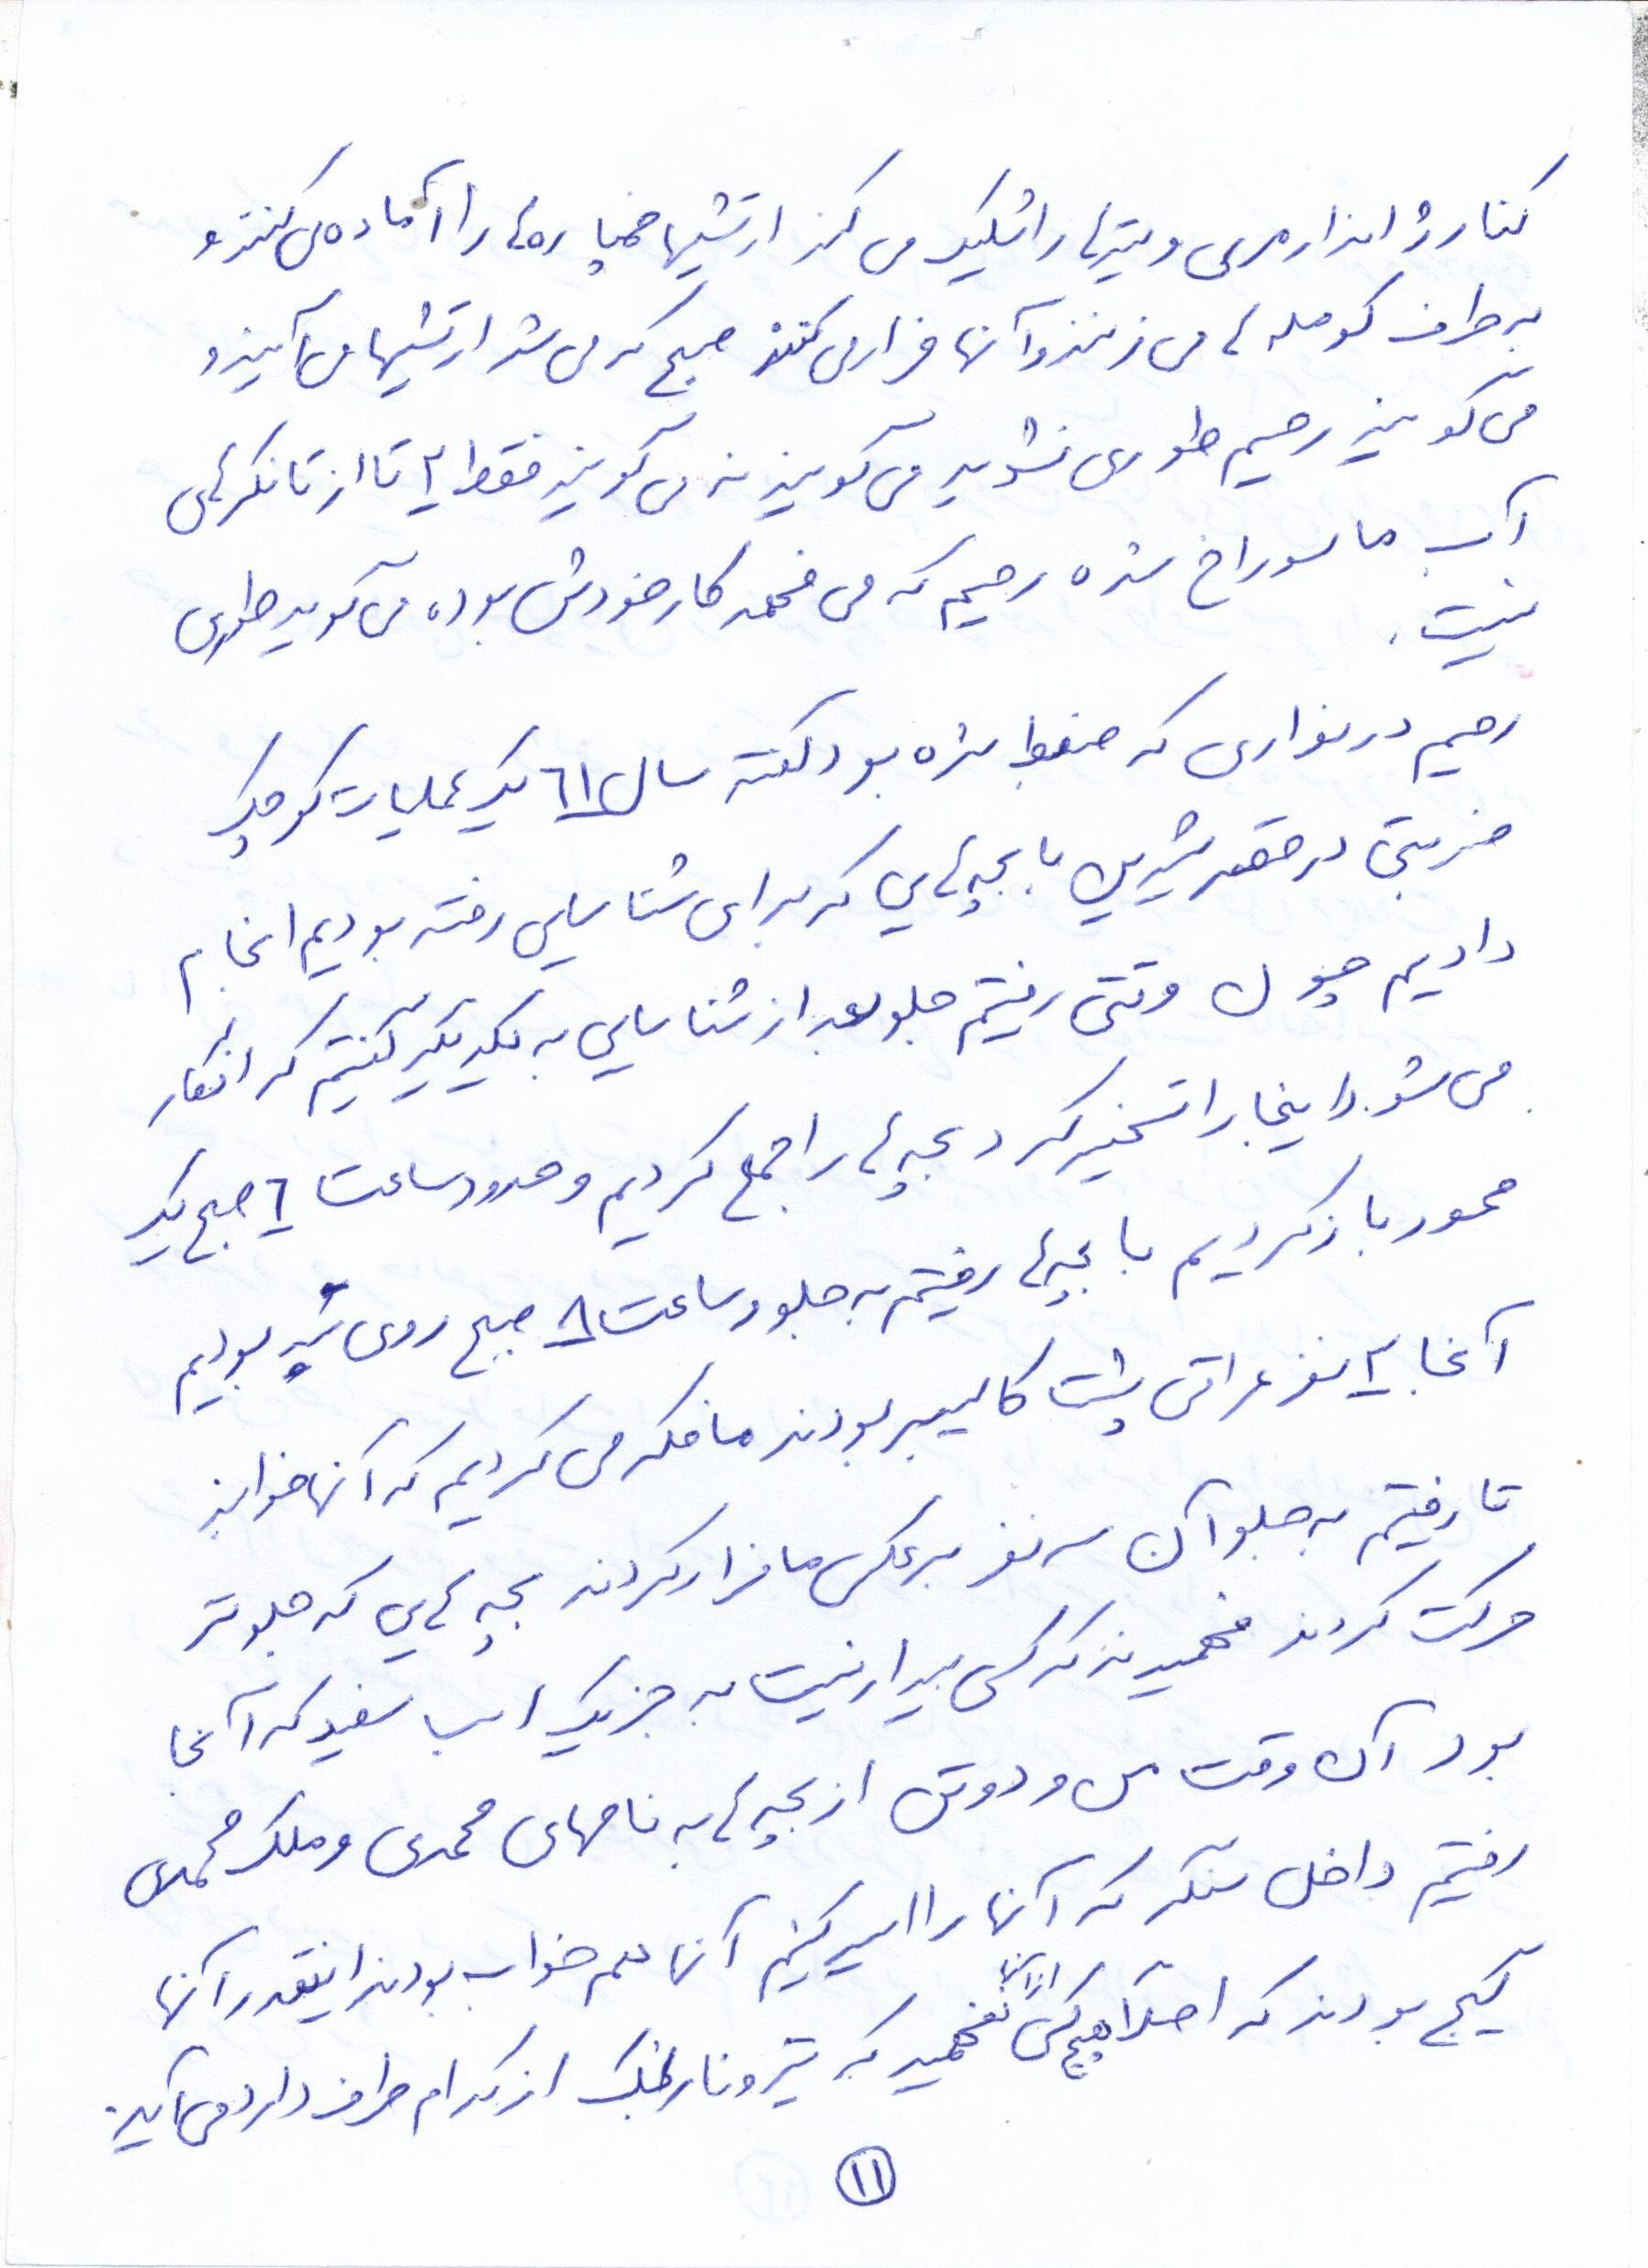 کنار ژاندارمری و تیرها را شلیک می کند ارتشیها خمپاره ها را آماده می کنند و
به طرف کومله ها می زنند و آنها فرار می کنند صبح که می شد ارتشیها می آیند و
می گویند رحیم طوری نشدید می گویند نه می گویند فقط ۲ تا از تانکرهای
آب ما سوراخ شده رحیم که می فهمد کار خودش بوده می گوید طوری
نیست.
رحیم در نواری که ضبط شده بود گفته سال ٦١ یک عملیات کوچک
ضربتی در قصر شیرین با بچه هایی که برای شناسایی رفته بودیم انجام
دادیم چون وقتی رفتیم جلو بعد از شناسایی به یکدیگر گفتیم که انگار
می شود اینجا را تسخیر کرد بچه ها را جمع کردیم و حدود ساعت ٦ صبح یک
محور باز کردیم با بچه ها رفتیم به جلو و ساعت ۸ صبح روی تپه بودیم
آنجا ۳ نفر عراقی پشت کالیبر بودند ما فکر می کردیم که آنها خوابند
تا رفتیم به جلو آن سه نفر برعکس ما فرار کردند بچه هایی که جلوتر
حرکت کردند فهمیدند که کسی بیدار نیست به جز یک اسب سفید که آنجا
بود آن وقت من و دو تن از بچه ها به نامهای محمدی و ملک محمدی
رفتیم داخل سنگر که آنها را اسیر کنیم آنها هم خواب بودند اینقدر آنها
گیج بودند که اصلاً هیچ کس از آنها نفهمید که تیر و نارنجک از کدام طرف دارد می آید.
١١